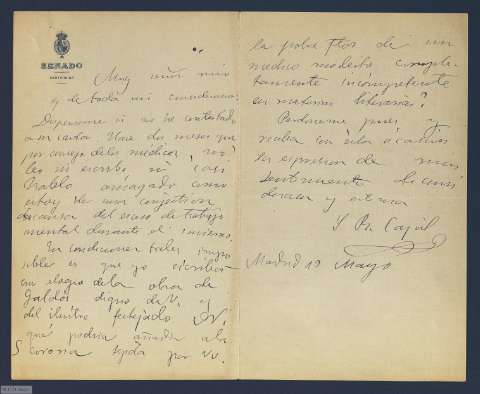 SENADO
PARTICULAR
Muy señor mio
y de toda mi consideracion
Dispenseme si no he contestado
a su carta. Hace dos meses que
por consejo de los médicos, ni
leo ni escribo ni casi
hablo amagado como
estoy de una congestion
del exceso de trabajo
mental durante el invierno.
En condiciones tales impo
sible es que yo escriba
un elogio de la obra de
Galdós digno de V. y
del ilustre festejado
qué podria añadir a la
corona tejida por Vv.
la pobre flor de un
médico modesto comple
tamente incompetente
en materias literarias?
Perdoneme pues y
reciba con
la expresion de mis
sentimiento
y estima
S. R. Cajal
Madrid 19 Mayo